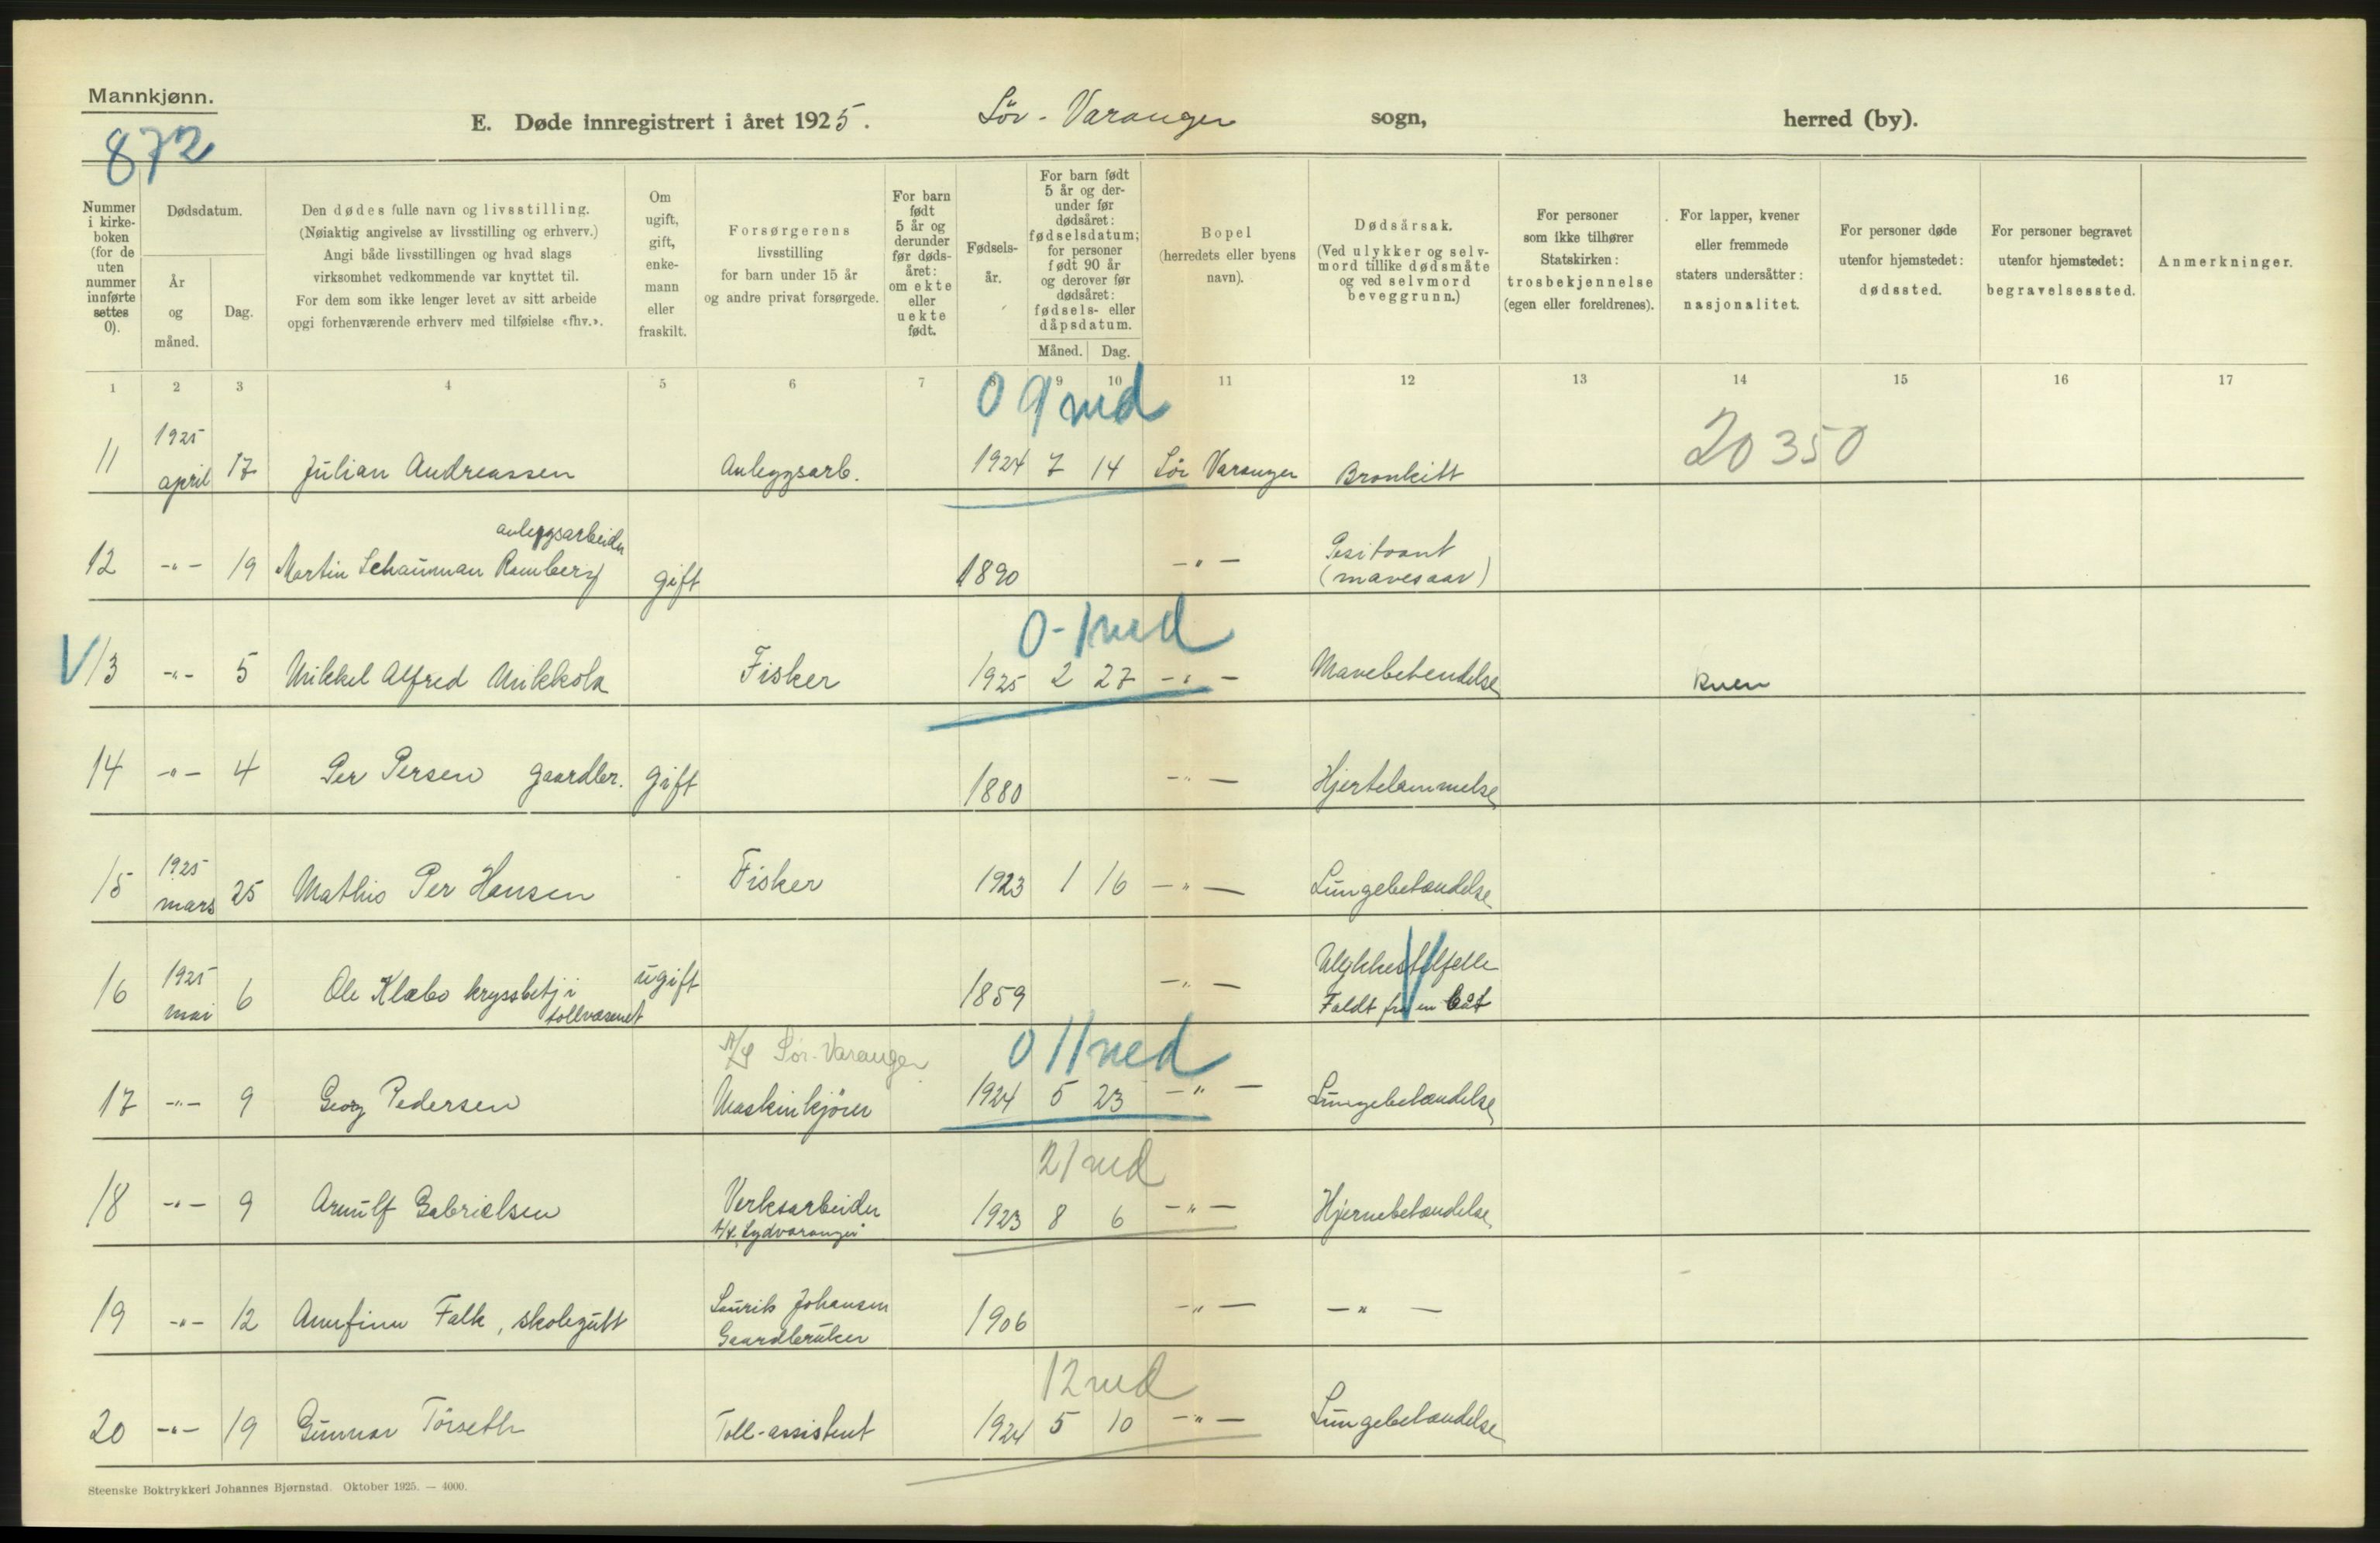 Mannkjønn.
872
E. Døde innregistrert i året 1925. Sör-Varanger sogn, herred (by).
Nummer i kirkeboken (for de uten nummer innførte settes 0).
Dødsdatum.
År og måned.
Dag.
Den dødes fulle navn og livsstilling.
(Nøiaktig angivelse av livsstilling og erhverv.)
Angi både livsstillingen og hvad slags
virksomhet vedkommende var knyttet til.
For dem som ikke lenger levet av sitt arbeide
opgi forhenværende erhverv med tilføielse «fhv.».
Om ugift, gift, enkemann eller fraskilt.
Forsørgerens
livsstilling
for barn under 15 år
og andre privat forsørgede.
For barn født 5 år og derunder før dødsåret: om ekte eller uekte født.
Fødselsår.
For barn født 5 år og derunder før dødsåret: fødselsdatum; for personer født 90 år og derover før dødsåret: fødsels- eller dåpsdatum.
Måned. Dag.
Bopel
(herredets eller byens navn).
Dødsårsak.
(Ved ulykker og selvmord tillike dødsmåte og ved selvmord beveggrunn.)
For personer som ikke tilhører Statskirken: trosbekjennelse (egen eller foreldrenes).
For lapper, kvener eller fremmede staters undersåtter: nasjonalitet.
For personer døde utenfor hjemstedet: dødssted.
For personer begravet utenfor hjemstedet: begravelsessted.
Anmerkninger.
1 2 3 4 5 6 7 8 9 10 11 12 13 14 15 16 17
0 9 md
20350
11 1925 april 17 Julian Andreassen Anleggsarb. 1924 7 14 Sör Varanger Bronkitt
anleggsarbeider
12 -"- 19 Martin Schaunman Romberg gift 1890 -"- (mavesaar)
0-1 md
V 13 -"- 5 Mikkel Alfred Mikkola Fisker 1925 2 27 -"- Mavebetendelse kven
14 -"- 4 Per Persen gaardbr. gift 1880 -"- Hjertelammelse
15 1925 mars 25 Mathis Per Hansen Fisker 1923 1 16 -"- Lungebetændelse
16 1925 mai 6 Ole Klæbo kryssbetj i tollvæsenet ugift 1859 -"- Ulykkestilfelle
Faldt fra en båt
A/S Sör-Varanger
0 11 md
17 -"- 9 Georg Pedersen Maskinkjörer 1924 5 23 -"- Lungebetændelse
21 md
18 -"- 9 Arnulf Gabrielsen Verksarbeider 1923 8 6 -"- Hjernebetændelse
A/S. Sydvaranger
19 -"- 12 Arnfinn Falk, skolegutt Laurits Johansen 1906 -"- -"-
Gaardbruker
12 md
20 -"- 19 Gunnar Törseth Toll-assistent 1924 5 10 -"- Lungebetændelse
Steenske Boktrykkeri Johannes Bjørnstad. Oktober 1925. — 4000.